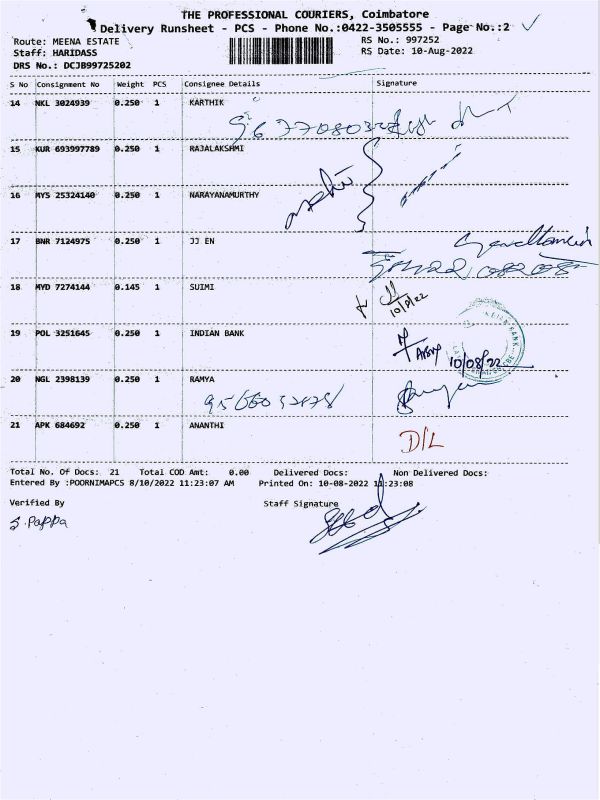 THE PROFESSIONAL COURIERS, Coimbatore
Delivery Runsheet - PCS - Phone No.:0422-3505555 - Page No.:2
Route: MEENA ESTATE RS No.: 997252
Staff: HARIDASS RS Date: 10-Aug-2022
DRS No.: DCJB99725202
S No Consignment No Weight PCS Consignee Details Signature
14 NKL 3024939 0.250 1 KARTHIK
15 KUR 693997789 0.250 1 RAJALAKSHMI
16 MYS 25324140 0.250 1 NARAYANAMURTHY
17 BNR 7124975 0.250 1 JJ EN
18 MYD 7274144 0.145 1 SUIMI
10/8/22
19 POL 3251645 0.250 1 INDIAN BANK
10/08/22
20 NGL 2398139 0.250 1 RAMYA
21 APK 684692 0.250 1 ANANTHI
D/L
Total No. Of Docs: 21 Total COD Amt: 0.00 Delivered Docs: Non Delivered Docs:
Entered By :POORNIMAPCS 8/10/2022 11:23:07 AM Printed On: 10-08-2022 11:23:08
Verified By Staff Signature
S. Pappa